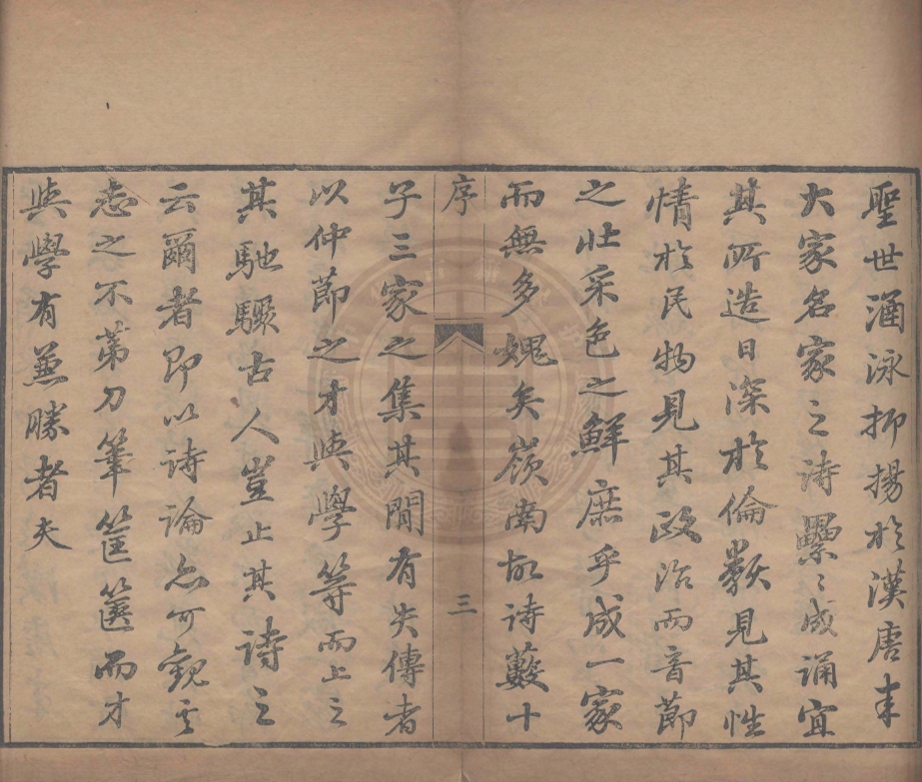 聖世涵泳抑揚於漢唐來
大家名家之诗纍〻成誦宜
其所造日深於倫類見其性
情於民物見其政治而音節
之壮采色之鮮庶乎成一家
而無多媿矣嶺南故诗藪十
序
三
子三家之集其閒有失傳者
以仲節之才與學等而上之
其馳驟古人豈止其詩之
云爾者即以诗論亦可觀其
志之不苐刀筆筐篋而才
與學有兼勝者夫